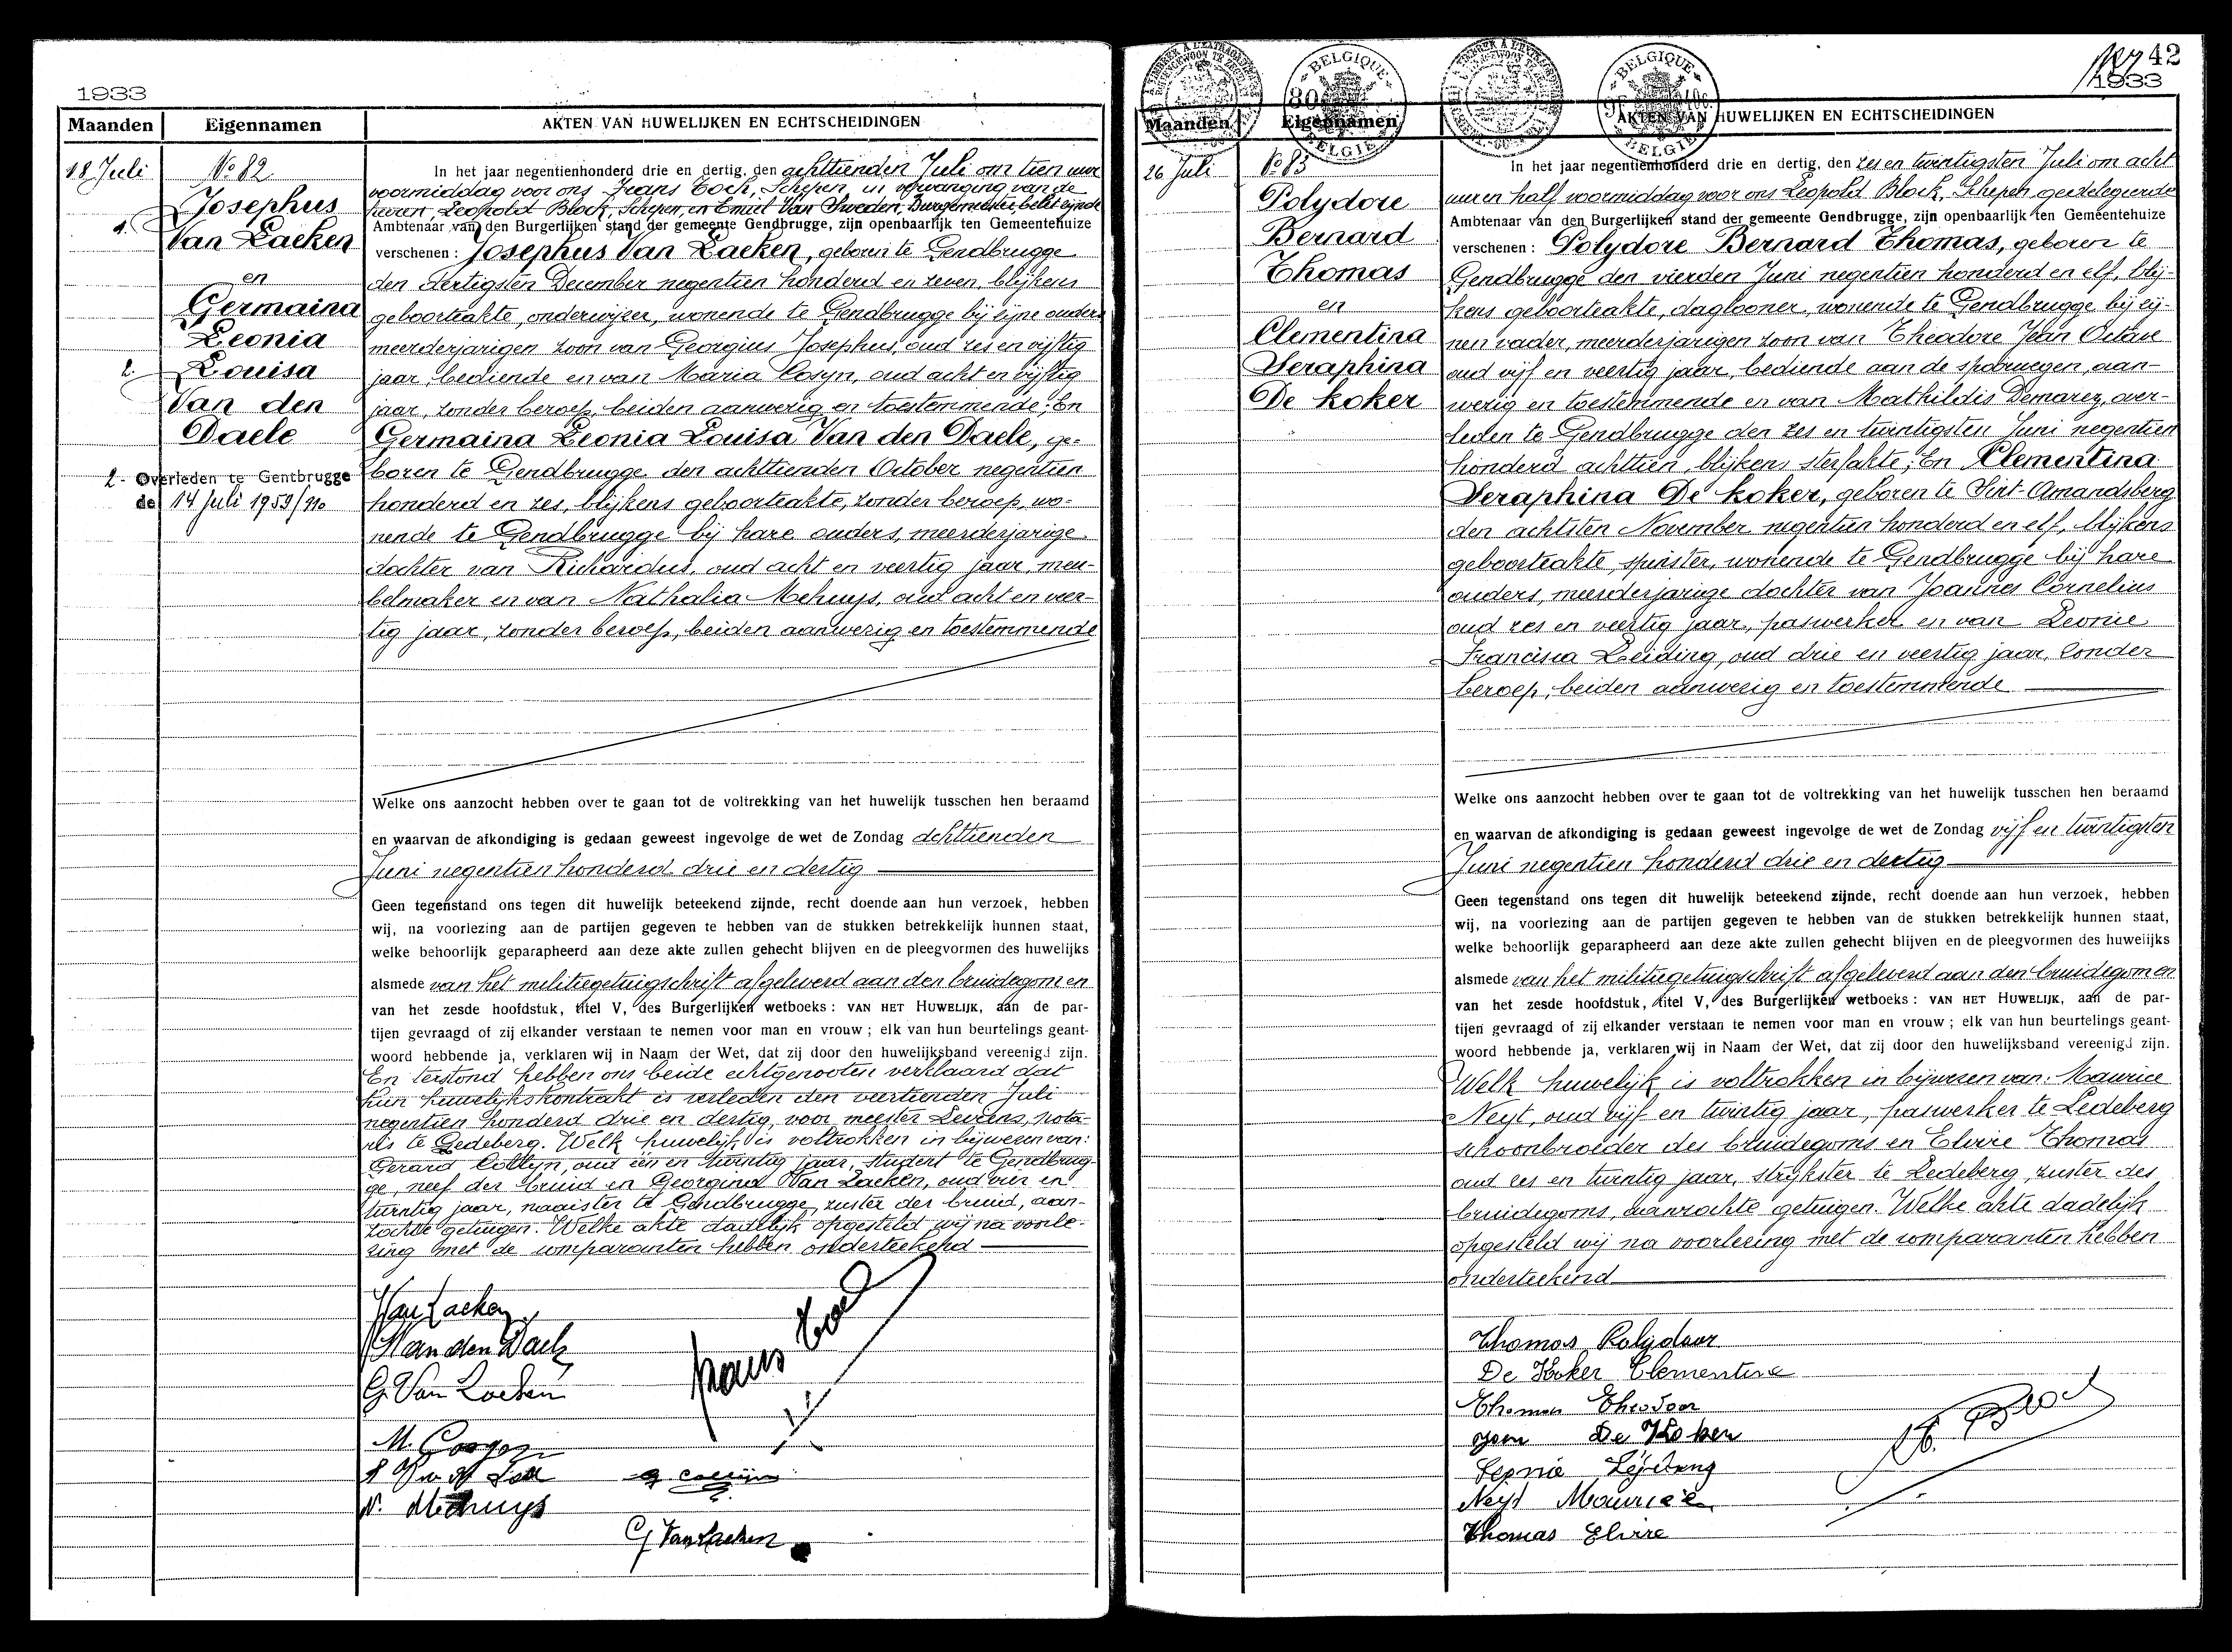 1933
Maanden Eigennamen AKTEN VAN HUWELIJKEN EN ECHTSCHEIDINGEN
18 Juli
No 82
1.
Josephus
Van Laeken
en
Germaina
Leonia
2.
Louisa
Van den
Daele
2- Overleden te Gentbrugge
de 14 Juli 1959
In het jaar negentienhonderd drie en dertig, den achttienden Juli om tien uur
voormiddag voor ons Frans Tock, Schepen, in vervanging van de
heeren, Leopold Block, Schepen, en Emiel Van Sweden, Burgemeester, belet zijnde
Ambtenaar van den Burgerlijken stand der gemeente Gendbrugge, zijn openbaarlijk ten Gemeentehuize
verschenen: Josephus Van Laeken, geboren te Gendbrugge
den dertigsten December negentien honderd en zeven, blijkens
geboorteakte, onderwijzer, wonende te Gendbrugge bij zijne ouders
meerderjarigen zoon van Georgius Josephus, oud zes en vijftig
jaar, bediende en van Maria Cosyn, oud acht en vijftig
jaar, zonder beroep, beiden aanwezig en toestemmende; En
Germaina Leonia Louisa Van den Daele, ge-
boren te Gendbrugge den achttienden October negentien
honderd en zes, blijkens geboorteakte, zonder beroep, wo-
nende te Gendbrugge bij hare ouders, meerderjarige
dochter van Richardus, oud acht en veertig jaar, meu-
belmaker en van Nathalia Mehuys, oud acht en veer-
tig jaar, zonder beroep, beiden aanwezig en toestemmende
Welke ons aanzocht hebben over te gaan tot de voltrekking van het huwelijk tusschen hen beraamd
en waarvan de afkondiging is gedaan geweest ingevolge de wet de Zondag achttienden
Juni negentien honderd drie en dertig
Geen tegenstand ons tegen dit huwelijk beteekend zijnde, recht doende aan hun verzoek, hebben
wij, na voorlezing aan de partijen gegeven te hebben van de stukken betrekkelijk hunnen staat,
welke behoorlijk geparapheerd aan deze akte zullen gehecht blijven en de pleegvormen des huwelijks
alsmede van het militiegetuigschrift afgeleverd aan den bruidegom en
van het zesde hoofdstuk, titel V, des Burgerlijken wetboeks: VAN HET HUWELIJK, aan de par-
tijen gevraagd of zij elkander verstaan te nemen voor man en vrouw; elk van hun beurtelings geant-
woord hebbende ja, verklaren wij in Naam der Wet, dat zij door den huwelijksband vereenigd zijn.
En terstond hebben ons beide echtgenooten verklaard dat
hun huwelijkskontrakt is verleden den veertienden Juli
negentien honderd drie en dertig, voor meester Levens, nota-
ris te Ledeberg. Welk huwelijk is voltrokken in bijwezen van:
Gerard Collyn, oud één en twintig jaar, student te Gendbrug-
ge, neef der bruid en Georgina Van Laeken, oud vier en
twintig jaar, naaister te Gendbrugge, zuster der bruid, aan-
zochte getuigen. Welke akte dadelijk opgesteld wij na voorle-
zing met de comparanten hebben onderteekend
Van Laeken
Van den Daele
G. Van Laeken
M. Cosyn
N. Mehuys
G Van Laeken
42
1933
BELGIQUE
BELGIE
BELGIQUE
BELGIE
Maanden Eigennamen AKTEN VAN HUWELIJKEN EN ECHTSCHEIDINGEN
26 Juli
No 83
Polydore
Bernard
Thomas
en
Clementina
Seraphina
De koker
In het jaar negentienhonderd drie en dertig, den zes en twintigsten Juli om acht
uur en half voormiddag voor ons Leopold Block, Schepen, gedelegeerde
Ambtenaar van den Burgerlijken stand der gemeente Gendbrugge, zijn openbaarlijk ten Gemeentehuize
verschenen: Polydore Bernard Thomas, geboren te
Gendbrugge den vierden Juni negentien honderd en elf, blij-
kens geboorteakte, daglooner, wonende te Gendbrugge bij zij-
nen vader, meerderjarigen zoon van Theodore Jean Octave
oud vijf en veertig jaar, bediende aan de spoorwegen, aan-
wezig en toestemmende en van Mathildis Demarez, over-
leden te Gendbrugge den zes en twintigsten Juni negentien
honderd achttien, blijkens sterfakte; En Clementina
Seraphina De koker, geboren te Sint-Amandsberg
den achtsten November negentien honderd en elf, blijkens
geboorteakte, spinster, wonende te Gendbrugge bij hare
ouders, meerderjarige dochter van Joannes Cornelius
oud zes en veertig jaar, paswerker en van Leonie
Francisca Leiding, oud drie en veertig jaar, zonder
beroep, beiden aanwezig en toestemmende
Welke ons aanzocht hebben over te gaan tot de voltrekking van het huwelijk tusschen hen beraamd
en waarvan de afkondiging is gedaan geweest ingevolge de wet de Zondag vijf en twintigsten
Juni negentien honderd drie en dertig
Geen tegenstand ons tegen dit huwelijk beteekend zijnde, recht doende aan hun verzoek, hebben
wij, na voorlezing aan de partijen gegeven te hebben van de stukken betrekkelijk hunnen staat,
welke behoorlijk geparapheerd aan deze akte zullen gehecht blijven en de pleegvormen des huwelijks
alsmede van het militiegetuigschrift afgeleverd aan den bruidegom en
van het zesde hoofdstuk, titel V, des Burgerlijken wetboeks: VAN HET HUWELIJK, aan de par-
tijen gevraagd of zij elkander verstaan te nemen voor man en vrouw; elk van hun beurtelings geant-
woord hebbende ja, verklaren wij in Naam der Wet, dat zij door den huwelijksband vereenigd zijn.
Welk huwelijk is voltrokken in bijwezen van: Maurice
Neyt, oud vijf en twintig jaar, paswerker te Ledeberg
schoonbroeder des bruidegoms en Elvire Thomas
oud zes en twintig jaar, strijkster te Ledeberg, zuster des
bruidegoms, aanzochte getuigen. Welke akte dadelijk
opgesteld wij na voorlezing met de comparanten hebben
onderteekend
Thomas Polydoor
De Koker Clementine
Thomas Theodoor
Jean De Koker
Leonie Leydeng
Neyt Maurice
Thomas Elvire